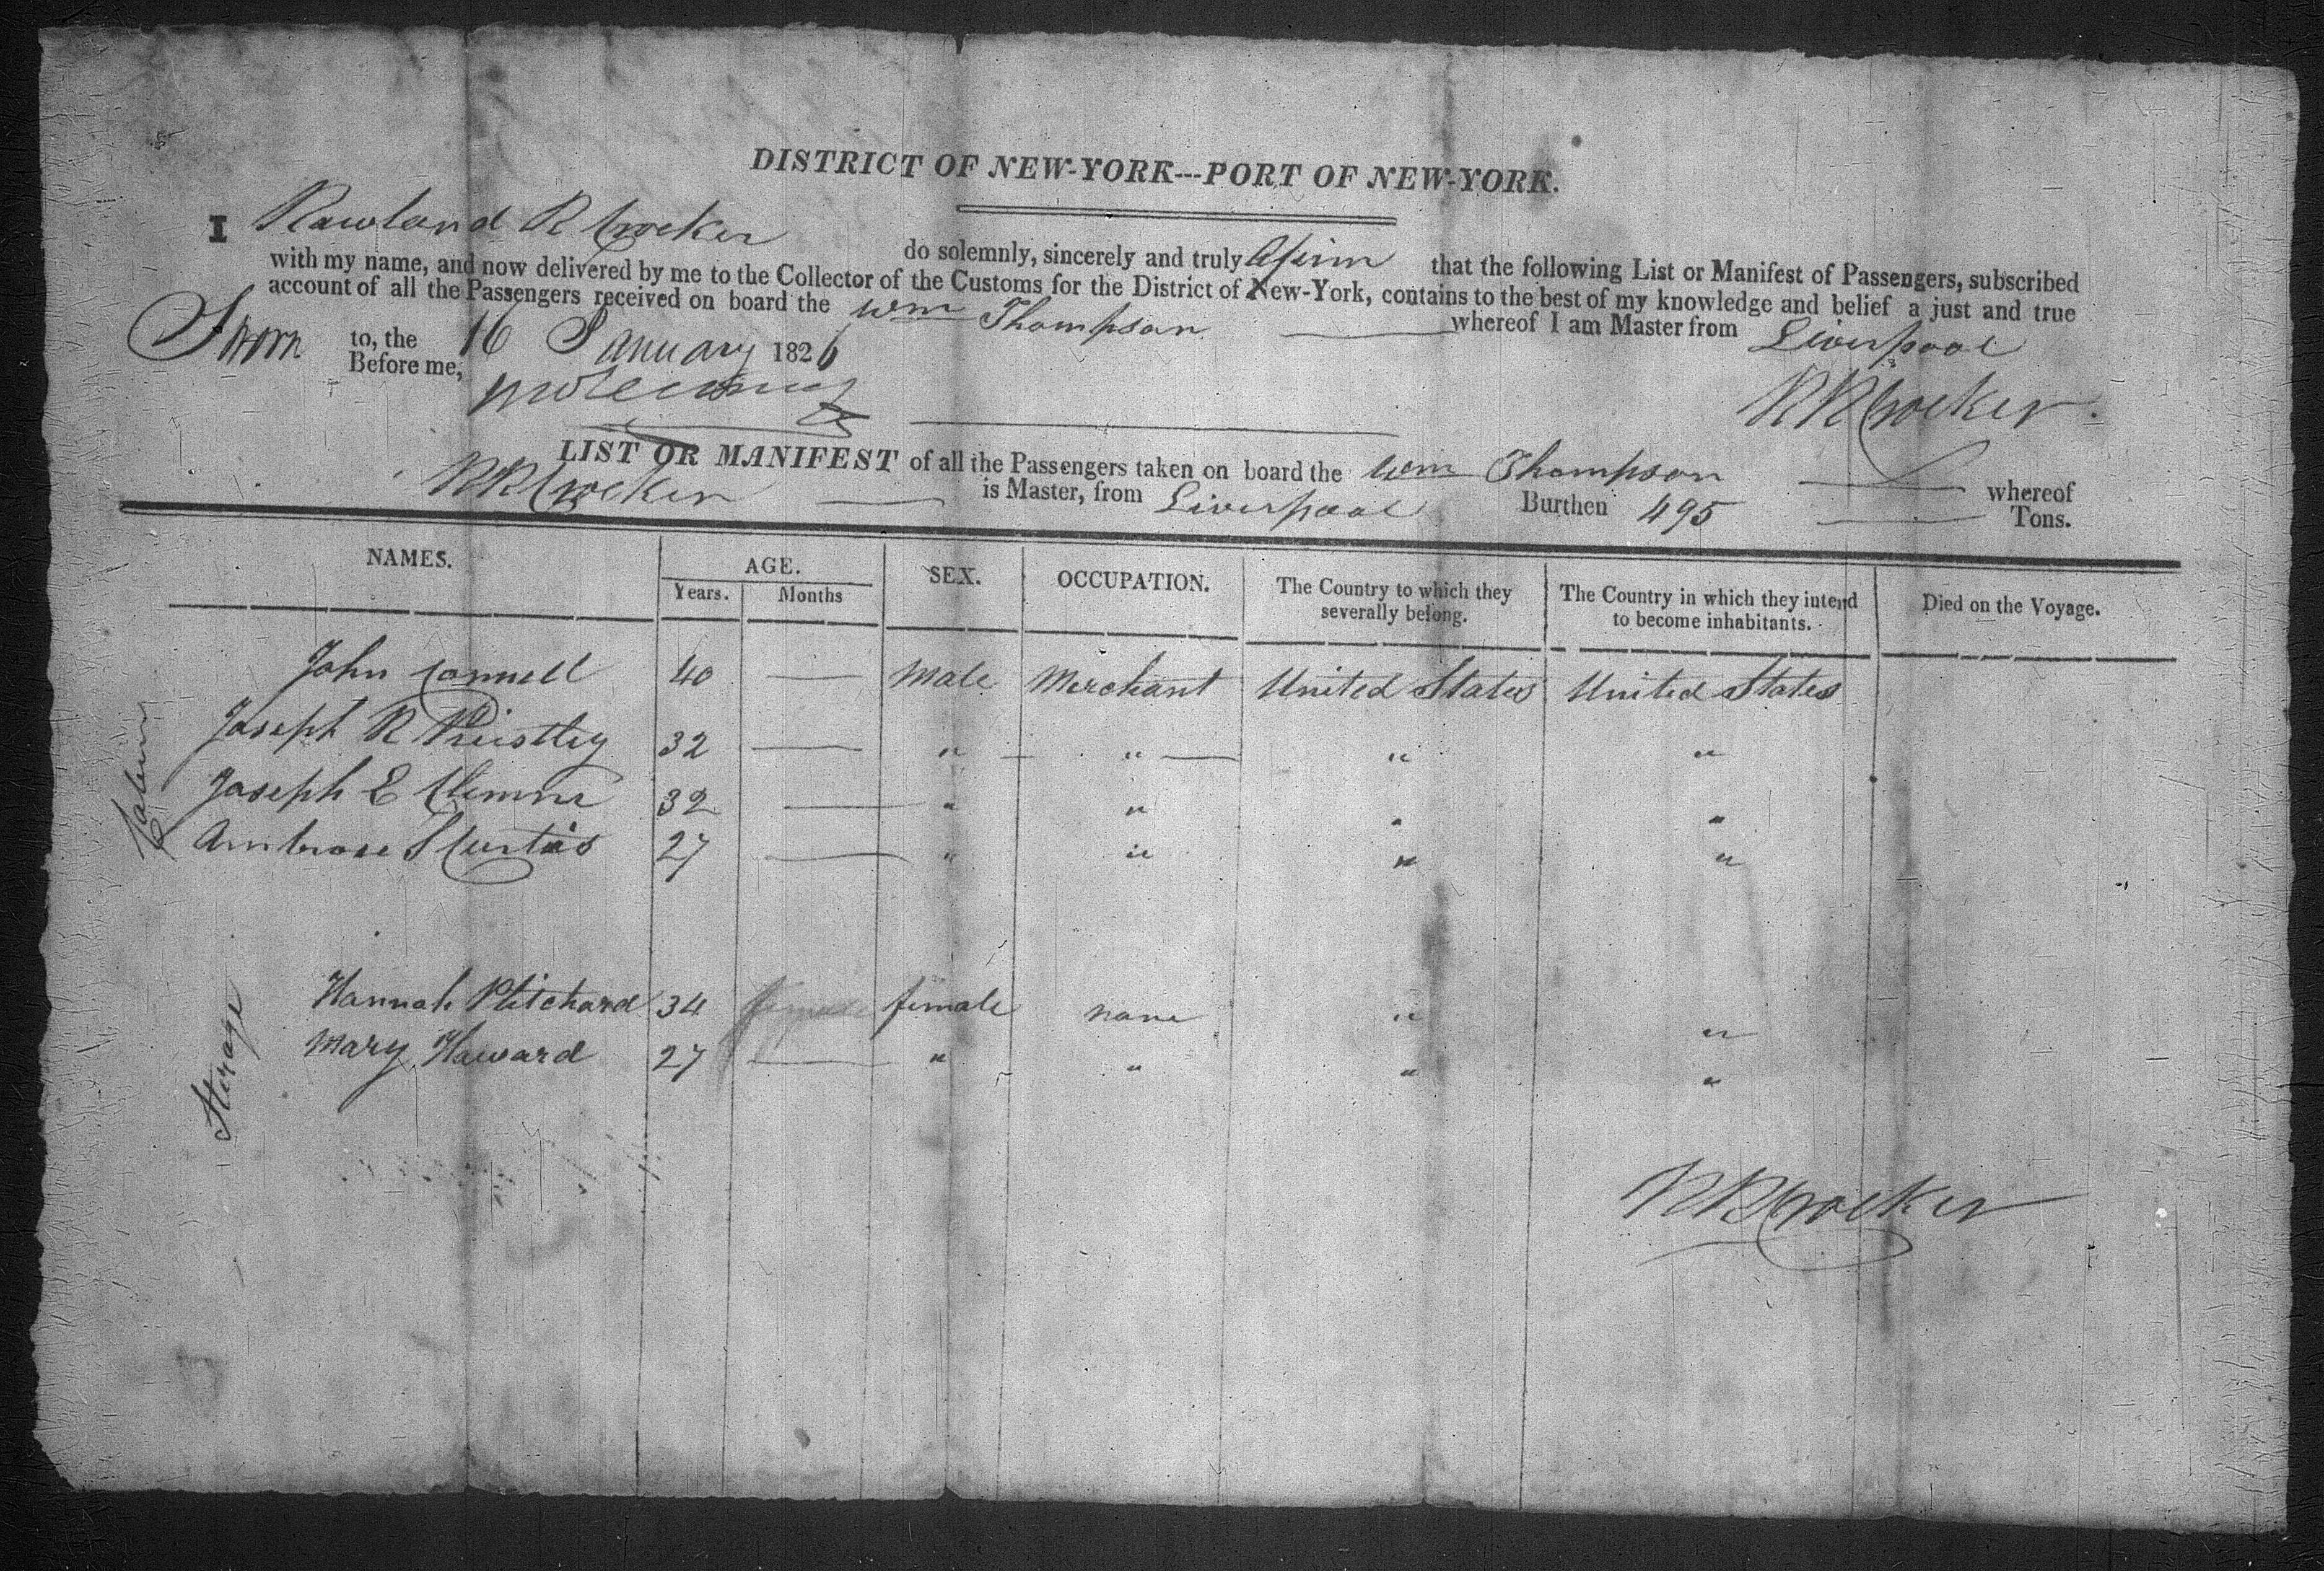 DISTRICT OF NEW-YORK---PORT OF NEW-YORK.
I Rowland R Crocker do solemnly, sincerely and truly Afirm that the following List or Manifest of Passengers, subscribed
with my name, and now delivered by me to the Collector of the Customs for the District of New-York, contains to the best of my knowledge and belief a just and true
account of all the Passengers received on board the Wm Thompson whereof I am Master from Liverpool
Sworn to, the 16 January 1826
Before me,
RRCrocker
LIST OR MANIFEST of all the Passengers taken on board the Wm Thompson whereof
RRCrocker is Master, from Liverpool Burthen 495 Tons.
NAMES. AGE. SEX. OCCUPATION. The Country to which they severally belong. The Country in which they intend to become inhabitants. Died on the Voyage.
Years. Months
Cabin
John Connell 40 — Male Merchant United States United States
Joseph R Priestley 32 — " " " "
Joseph E 32 — " " " "
Ambrose S Curtis 27 — " " " "
Sterage
Hannah Pritchard 34 female female none " "
Mary Haward 27 — " " " "
RRCrocker